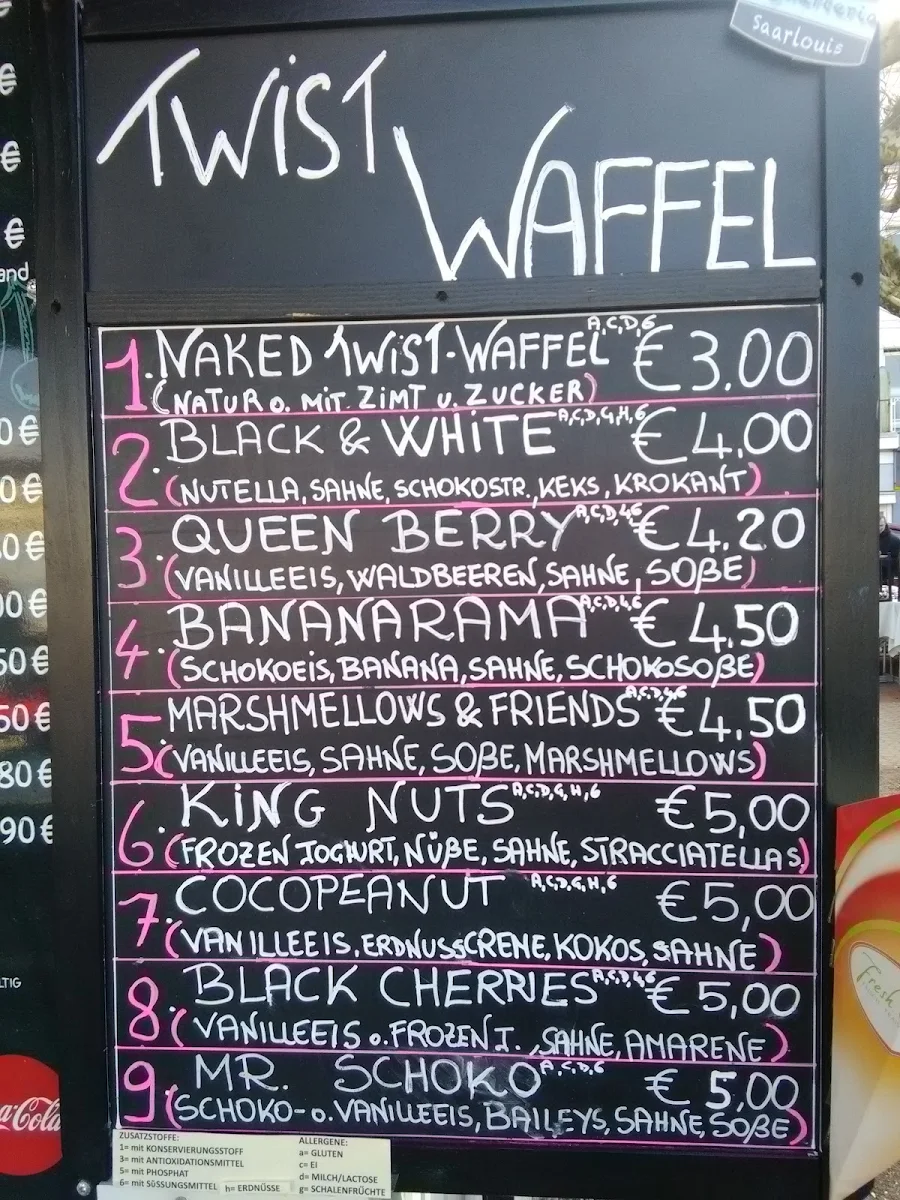 Saarlouis
TWIST
WAFFEL
1. NAKED TWIST-WAFFEL A,C,D,6 € 3.00
(NATUR o. MIT ZIMT u. ZUCKER)
2. BLACK & WHITE A,C,D,G,H,6 € 4.00
(NUTELLA, SAHNE, SCHOKOSTR., KEKS, KROKANT)
3. QUEEN BERRY A,C,D,4,6 € 4.20
(VANILLEEIS, WALDBEEREN, SAHNE, SOßE)
4. BANANARAMA A,C,D,4,6 € 4.50
(SCHOKOEIS, BANANA, SAHNE, SCHOKOSOßE)
5. MARSHMELLOWS & FRIENDS A,C,D,4,6 € 4.50
(VANILLEEIS, SAHNE, SOßE, MARSHMELLOWS)
6. KING NUTS A,C,D,G,H,6 € 5,00
(FROZEN JOGHURT, NÜßE, SAHNE, STRACCIATELLAS)
7. COCOPEANUT A,C,D,G,H,6 € 5,00
(VANILLEEIS, ERDNUSSCREME, KOKOS, SAHNE)
8. BLACK CHERRIES A,C,D,4,6 € 5,00
(VANILLEEIS o. FROZEN J., SAHNE, AMARENE)
9. MR. SCHOKO A,C,D,6 € 5,00
(SCHOKO- o. VANILLEEIS, BAILEYS, SAHNE, SOßE)
ZUSATZSTOFFE:
1= mit KONSERVIERUNGSSTOFF
3= mit ANTIOXIDATIONSMITTEL
5= mit PHOSPHAT
6= mit SÜSSUNGSMITTEL h= ERDNÜSSE
ALLERGENE:
a= GLUTEN
c= EI
d= MILCH/LACTOSE
g= SCHALENFRÜCHTE
€
€
€
and
0 €
0 €
0 €
00 €
50 €
50 €
80 €
90 €
LTIG
a-Cola
Fresh